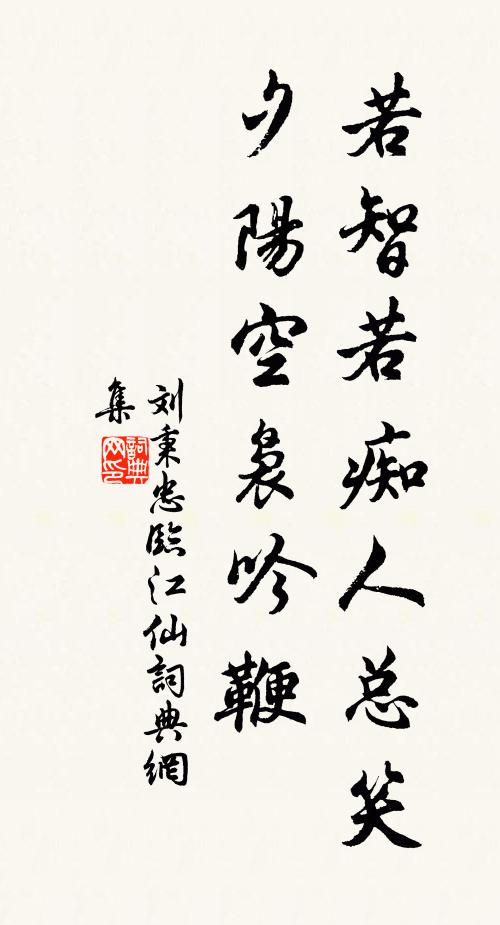 若智若痴人总笑
夕陽空袅吟鞭
刘秉忠臨江仙詞典網
集
詞典网印